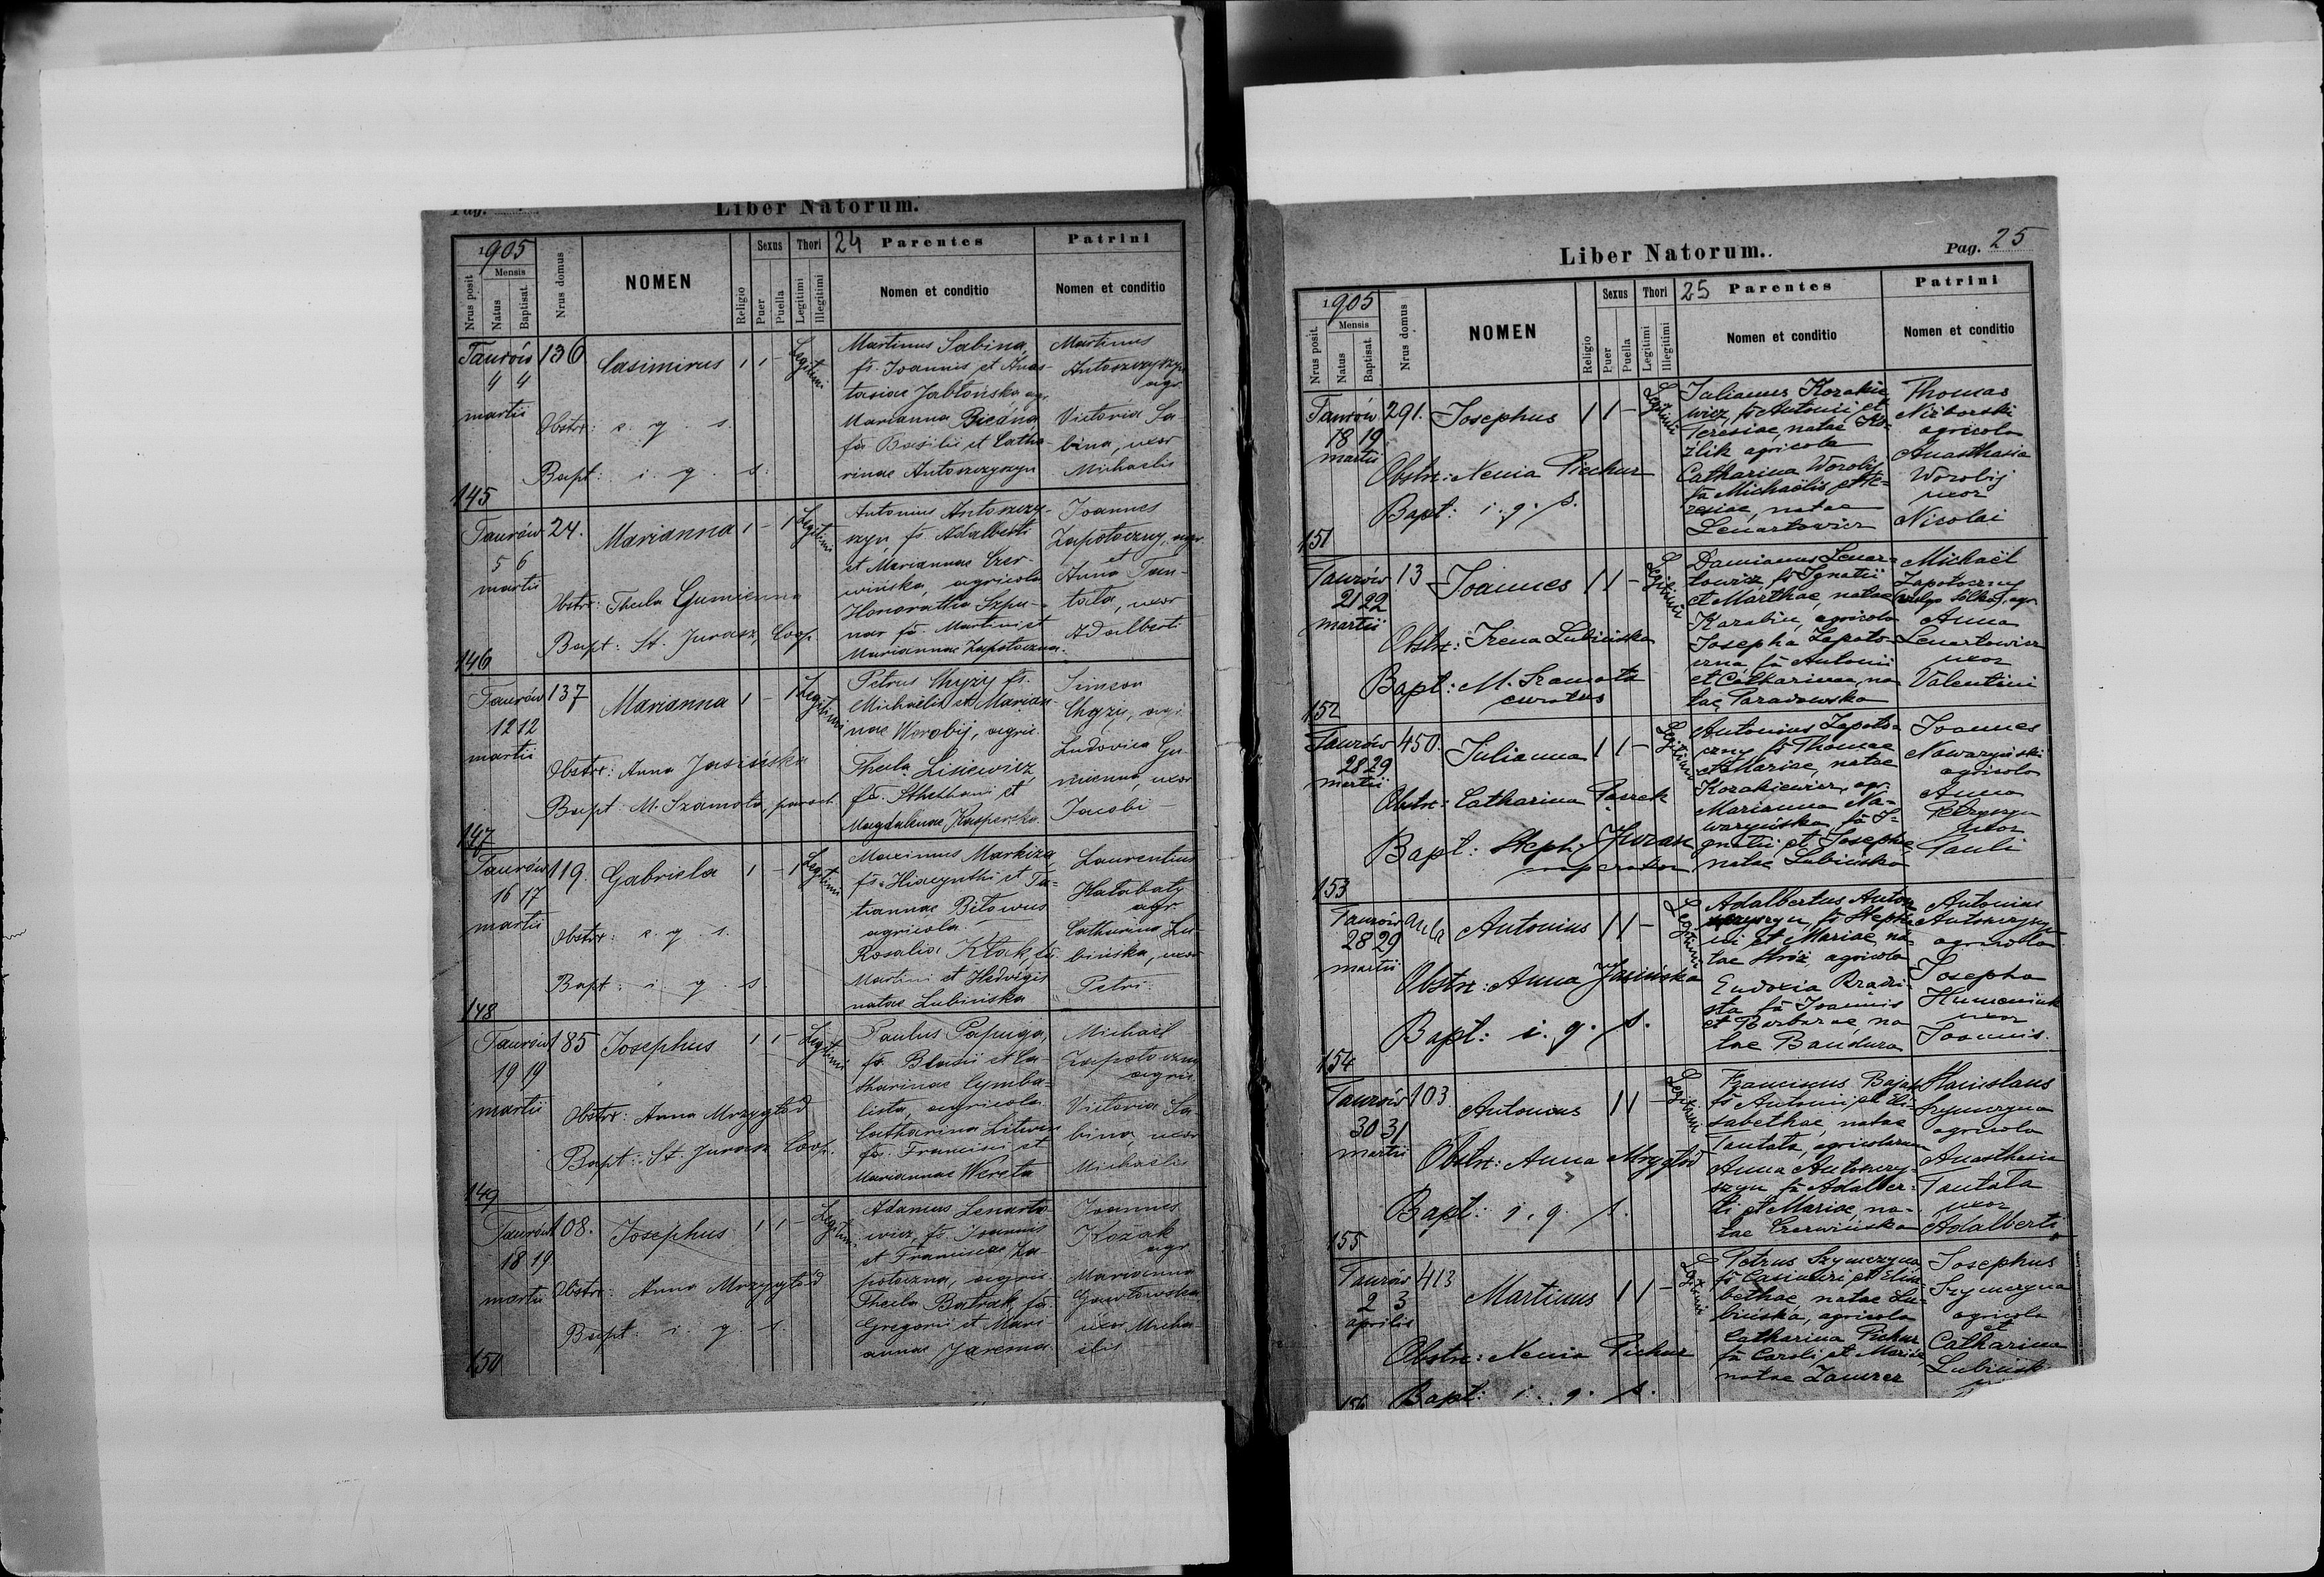 Pag.
Liber Natorum.
1905
Nrus posit.
Mensis
Natus
Baptisat.
Nrus domus
NOMEN
Religio
Sexus
Puer
Puella
Thori
Legitimi
Illegitimi
24 Parentes
Nomen et conditio
Patrini
Nomen et conditio
Taurów 136 Casimirus 1 1 - Legitimi
4 4
martii
Obstr: e. q. s.
Bapt: i. q. s.
145
Martinus Sabina,
fs. Joannis et Anas-
tasiae Jabłońska, agr.
Marianna Biedna,
fa Basilii et Catha-
rinae Antoszczyszyn
Martinus
Antoszczyszyn
agr.
Victoria Sa-
bina, uxor
Michaelis
Taurów 24. Marianna 1 - 1 Legitimi
5 6
martii
Obstr: Thecla Gumienna
Bapt: St. Jurasz, Coop.
146
Antonius Antoszczy-
szyn fs. Adalberti
et Mariannae Czer-
wińska, agricola
Honoratha Szpu-
nar fa. Martini et
Mariannae Zapotoczna.
Joannes
Zapotoczny, agr.
et
Anna Tan-
tala, uxor
Adalberti
Taurów 137 Marianna 1 - 1 Legitimi
12 12
martii
Obstr: Anna Jasińska
Bapt: M. Szamota, paroch.
147
Petrus Chyzy fs.
Michaelis et Marian-
nae Worobij, agric.
Thecla Lisiewicz,
fa. Stephani et
Magdalenae Kasperska.
Simeon
Chyzy, agr.
Ludovica Gu-
mienna, uxor
Jacobi
Taurów 119. Gabriela 1 - 1 Legitimi
16 17
martii
Obstr: e. q. s.
Bapt: i. q. s.
148
Maximus Markiza,
fs. Hiacynthi et Ta-
tiannae Bitowus
agricola
Rosalia Kłak, fa.
Martini et Hedvigis
natae Lubińska
Laurentius
Hałabaty
agr.
Catharina Lu-
bińska, uxor
Petri
Taurów 185 Josephus 1 1 - Legitimi
19 19
martii
Obstr: Anna Mrzygłód
Bapt: St. Jurasz Coop.
149
Paulus Papuga,
fs. Blasii et Ca-
tharinae Cymba-
lista, agricola
Catharina Litwin
fa. Francisci et
Mariannae Wereta
Michael
Zapotoczny
agric.
Victoria Sa-
bina, uxor
Michaelis
Taurów 108. Josephus 1 1 - Legitimi
18 19
martii
Obstr: Anna Mrzygłód
Bapt. i. q. s.
150
Adamus Lenarto-
wicz, fs. Joannis
et Franciscae Za-
potoczna, agric.
Thecla Batrak, fa.
Gregorii et Mari-
annae Jarema.
Joannes
Kozak
agr.
Marianna
Gawłowska
uxor Micha-
elis
Liber Natorum..
Pag. 25
1905
Nrus posit.
Mensis
Natus
Baptisat.
Nrus domus
NOMEN
Religio
Sexus
Puer
Puella
Thori
Legitimi
Illegitimi
25 Parentes
Nomen et conditio
Patrini
Nomen et conditio
Taurów 291. Josephus 1 1 - Legitimi
18 19
martii
Obstr: Xenia Pichur
Bapt: i. q. s.
151
Julianus Kozakie
wicz, fs Antonii et
Teresiae, natae Ko-
źlik agricola
Catharina Worobij
fa Michaëlis et Te-
resiae, natae
Lenartowicz
Thomas
Niżborski
agricola
Anasthasia
Worobij
uxor
Nicolai
Taurów 13 Joannes 1 1 - Legitimi
21 22
martii
Obstr: Irena Lubińska
Bapt: M. Szamota
curatus
152
Damianus Lenar-
towicz, fs Ignatii
et Marthae, natae
Karabin, agricola
Josepha Zapoto-
czna, fa Antonii
et Catharinae, na
tae Paradowska
Michaël
Zapotoczny
agr.
Anna
Lenartowicz
uxor
Valentini
Taurów 450. Julianna 1 1 - Legitimi
28 29
martii
Obstr: Catharina Paszek
Bapt: Steph. Jurasz
cooperator
153
Antonius Zapoto-
czny fs Thomae
et Mariae, natae
Kozakiewicz, agr.
Marianna Na-
waryńska, fa I-
gnatii et Josephae,
natae Lubińska
Joannes
Nawaryński
agricola
Anna
Petryszyn
uxor
Pauli
Taurów aula Antonius 1 1 - Legitimi
28 29
martii
Obstr: Anna Jasińska
Bapt: i. q. s.
154
Adalbertus Antosz
czyszyn, fs Stepha
ni et Mariae, na-
tae Stróż, agricola
Eudoxia
fa Joannis
et Barbarae, na
tae Bandura
Antonius
Antoszczyszyn
agricola
Josepha
Humeniuk
uxor
Joannis.
Taurów 103 Antonius 1 1 - Legitimi
30 31
martii
Obstr: Anna Mrzygłód
Bapt: i. q. s.
155
Franciscus Bajak
fs Antonii et Eli-
sabethae, natae
Tantala, agricola
Anna Antoszczy-
szyn fa Adalber-
ti et Mariae, na-
tae Czerwińska
Stanislaus
Szymczyna
agricola
Anasthasia
Tantala
uxor
Adalberti
Taurów 413 Martinus 1 1 - Legitimi
2 3
aprilis
Obstr: Xenia Pichur
Bapt: i. q. s.
156
Petrus Szymczyna
fs Casimiri et Elisa-
bethae, natae Lu-
bińska, agricola
Catharina Pichur
fa Caroli et Mariae,
natae Zawrer
Josephus
Szymczyna
agricola
et
Catharina
Lubińsk